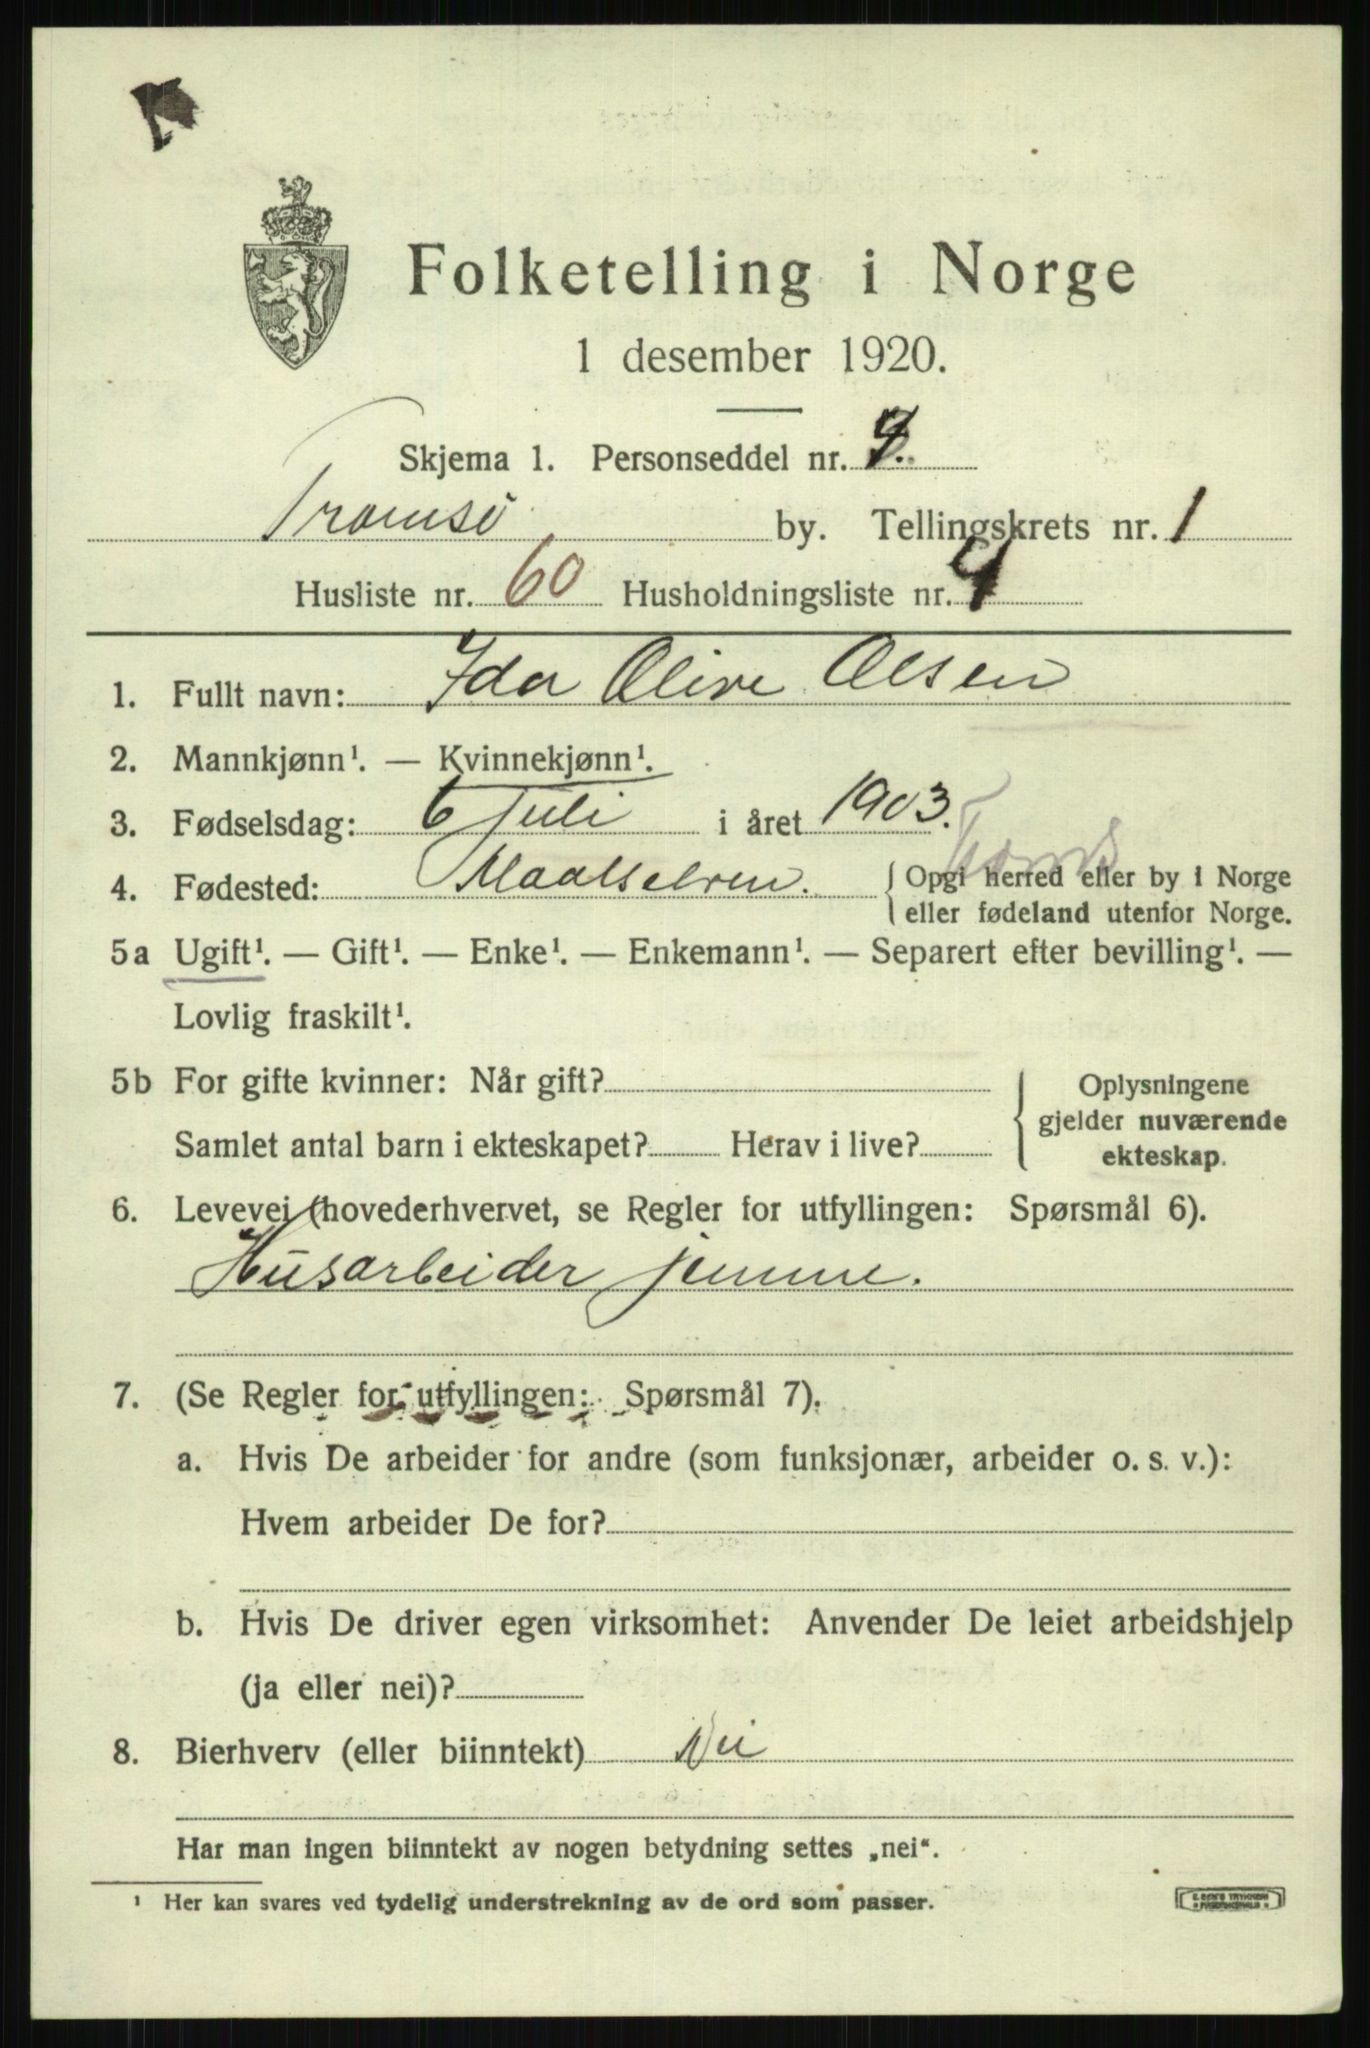 Folketelling i Norge
1 desember 1920.
Skjema 1. Personseddel nr.
Tromsø by. Tellingskrets nr. 1
Husliste nr. 60 Husholdningsliste nr. 4
1. Fullt navn: Ida Olive Olsen
2. Mannkjønn¹. — Kvinnekjønn¹.
3. Fødselsdag: 6 Juli i året 1903.
Troms
4. Fødested: Maalselven. { Opgi herred eller by i Norge
eller fødeland utenfor Norge.
5a Ugift¹. — Gift¹. — Enke¹. — Enkemann¹. — Separert efter bevilling¹. —
Lovlig fraskilt¹.
5b For gifte kvinner: Når gift? { Oplysningene
gjelder nuværende
Samlet antal barn i ekteskapet? Herav i live? ekteskap.
6. Levevei (hovederhvervet, se Regler for utfyllingen: Spørsmål 6).
Husarbeider jemme.
7. (Se Regler for utfyllingen: Spørsmål 7).
a. Hvis De arbeider for andre (som funksjonær, arbeider o. s. v.):
Hvem arbeider De for?
b. Hvis De driver egen virksomhet: Anvender De leiet arbeidshjelp
(ja eller nei)?
8. Bierhverv (eller biinntekt) Nei
Har man ingen biinntekt av nogen betydning settes „nei“.
¹ Her kan svares ved tydelig understrekning av de ord som passer.